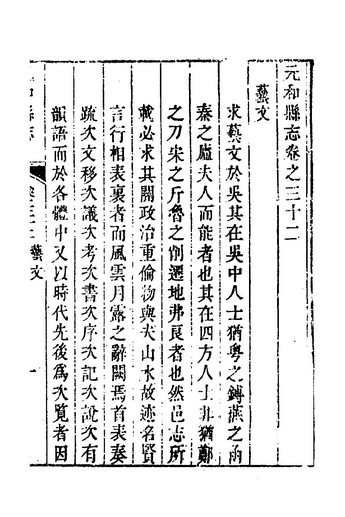 元和縣志卷之三十二
藝文
求藝文於吳其在吳中人士猶粵之鎛燕之函
秦之廬夫人而能者也其在四方人士非猶鄭
之刀宋之斤魯之削遷地弗良者也然邑志所
載必求其關政治重倫物與夫山水故迹名賢
言行相表裏者而風雲月露之辭闕焉首表奏
疏次文移次議次考次書次序次記次說次有
韻語而於各體中又以時代先後爲次覽者因
卷三十二 藝文
一